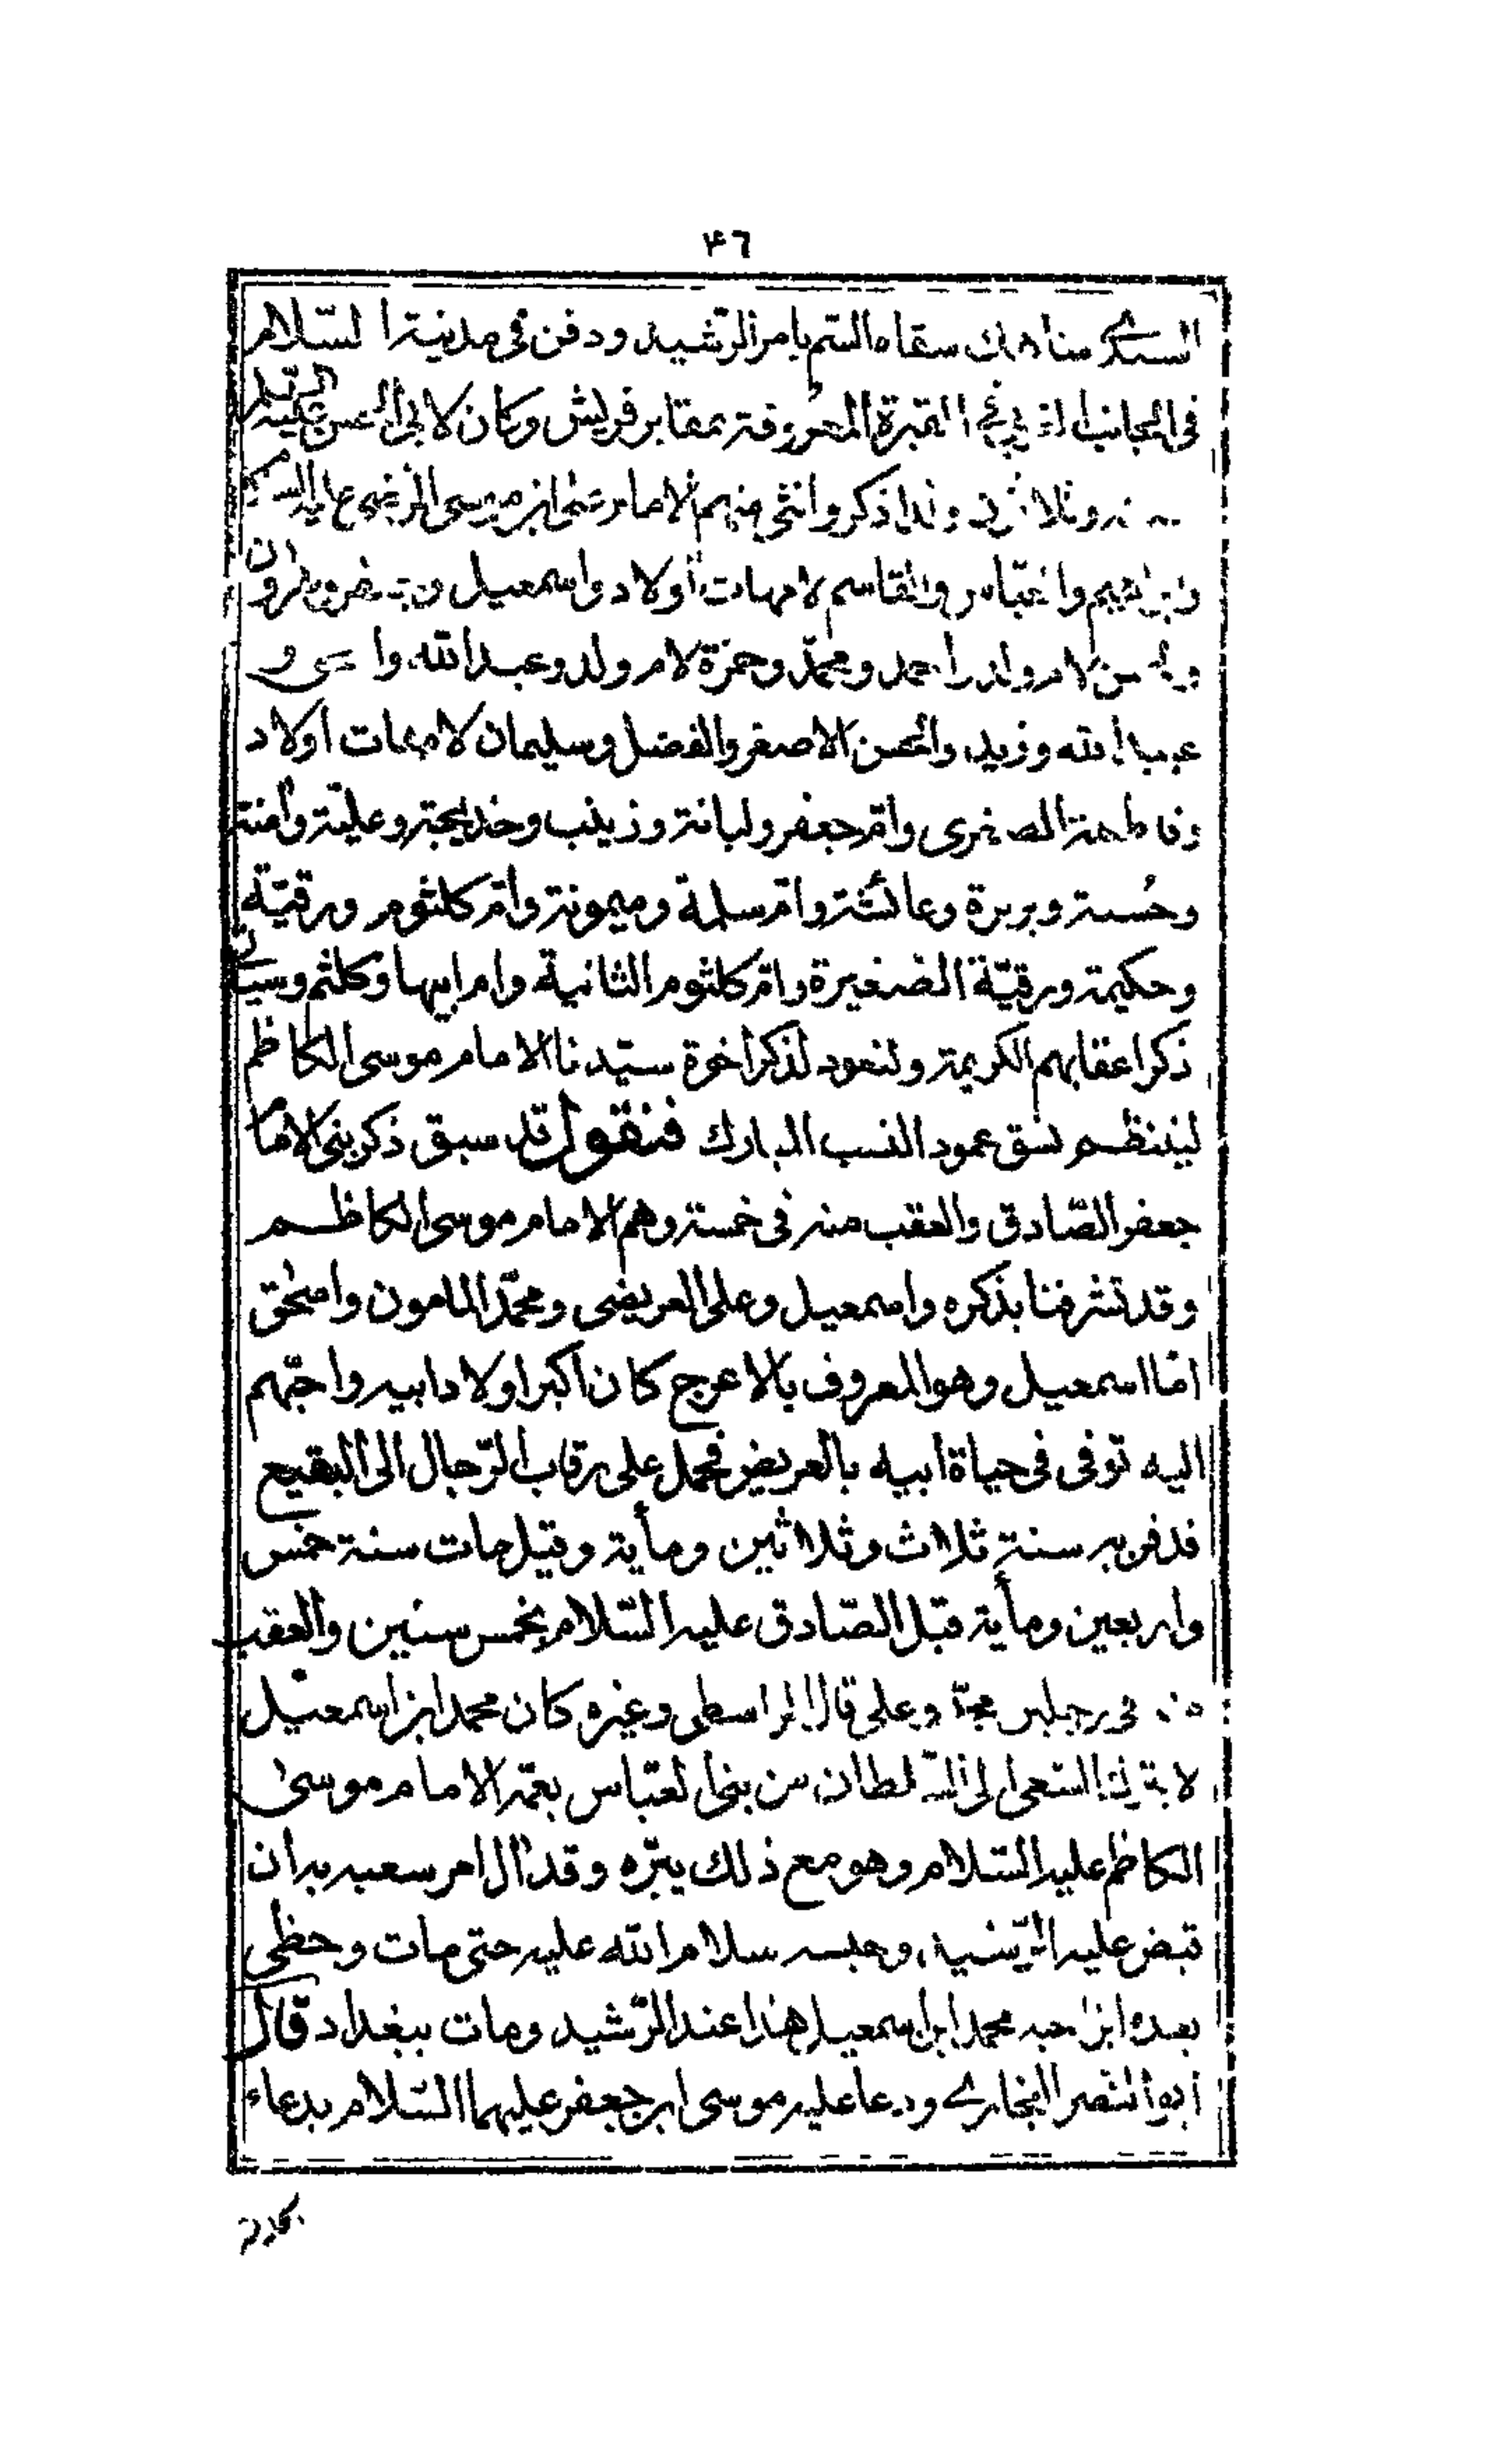 ٤٦
السندي ابن شاهك سقاه السم بامر الرشيد ودفن في مدينة السلام
فى الجانب الغربي المقبرة المعروفة بمقابر قريش وكان لابي الحسن عليه السلام
وثلاثون ولدا ذكر وانثى منهم الامام على ابن موسى الرضى عليه السلام
وابراهيم والعباس والقاسم لامهات اولاد واسمعيل وجعفر وهارون
والحسن لام ولد واحمد ومحمد وحمزة لام ولد وعبدالله واسحق و
عبيدالله وزيد والحسن الاصغر والفضل وسليمان لامهات اولاد
وفاطمة الصغرى وام جعفر ولبانة وزينب وخديجة وعلية وآمنة
وحسنة وبريرة وعائشة وام سلمة وميمونة وام كلثوم ورقيّة
وحكيمة ورقيّة الصغيرة وام كلثوم الثانية وام ابيها وكلثم وسيأتى
ذكر اعقابهم الكريمة ولنعود لذكر اخوة سيّدنا الامام موسى الكاظم
لينتظم نسق عمود النسب المبارك فنقول قد سبق ذكر بنى الامام
جعفر الصّادق والعقب منه فى خمسة وهم الامام موسى الكاظم
وقد تشرفنا بذكره واسمعيل وعلى العريضى ومحمّد المامون واسحق
امّا اسمعيل وهو المعروف بالاعرج كان اكبر اولاد ابيه واحبّهم
اليه توفى فى حياة ابيه بالعريض فحمل على رقاب الرّجال الى البقيع
فدفن به سنة ثلاث وثلاثين ومأية وقيل مات سنة خمس
واربعين ومأية قبل الصّادق عليه السّلام بخمس سنين والعقب
منه فى رجلين محمّد وعلى قال الواسطى وغيره كان محمد ابن اسمعيل
لا يترك السعى الى السّلطان من بنى العبّاس بعمّه الامام موسى
الكاظم عليه السّلام وهو مع ذلك يبرّه وقد آل امر سعيه به ان
قبض عليه الرّشيد وحبسه سلام الله عليه حتى مات وحظى
بعده ابن اخيه محمد ابن اسمعيل هذا عند الرّشيد ومات ببغداد قال
ابوا النصر البخارى ودعا عليه موسى ابن جعفر عليهما السّلام بدعاء